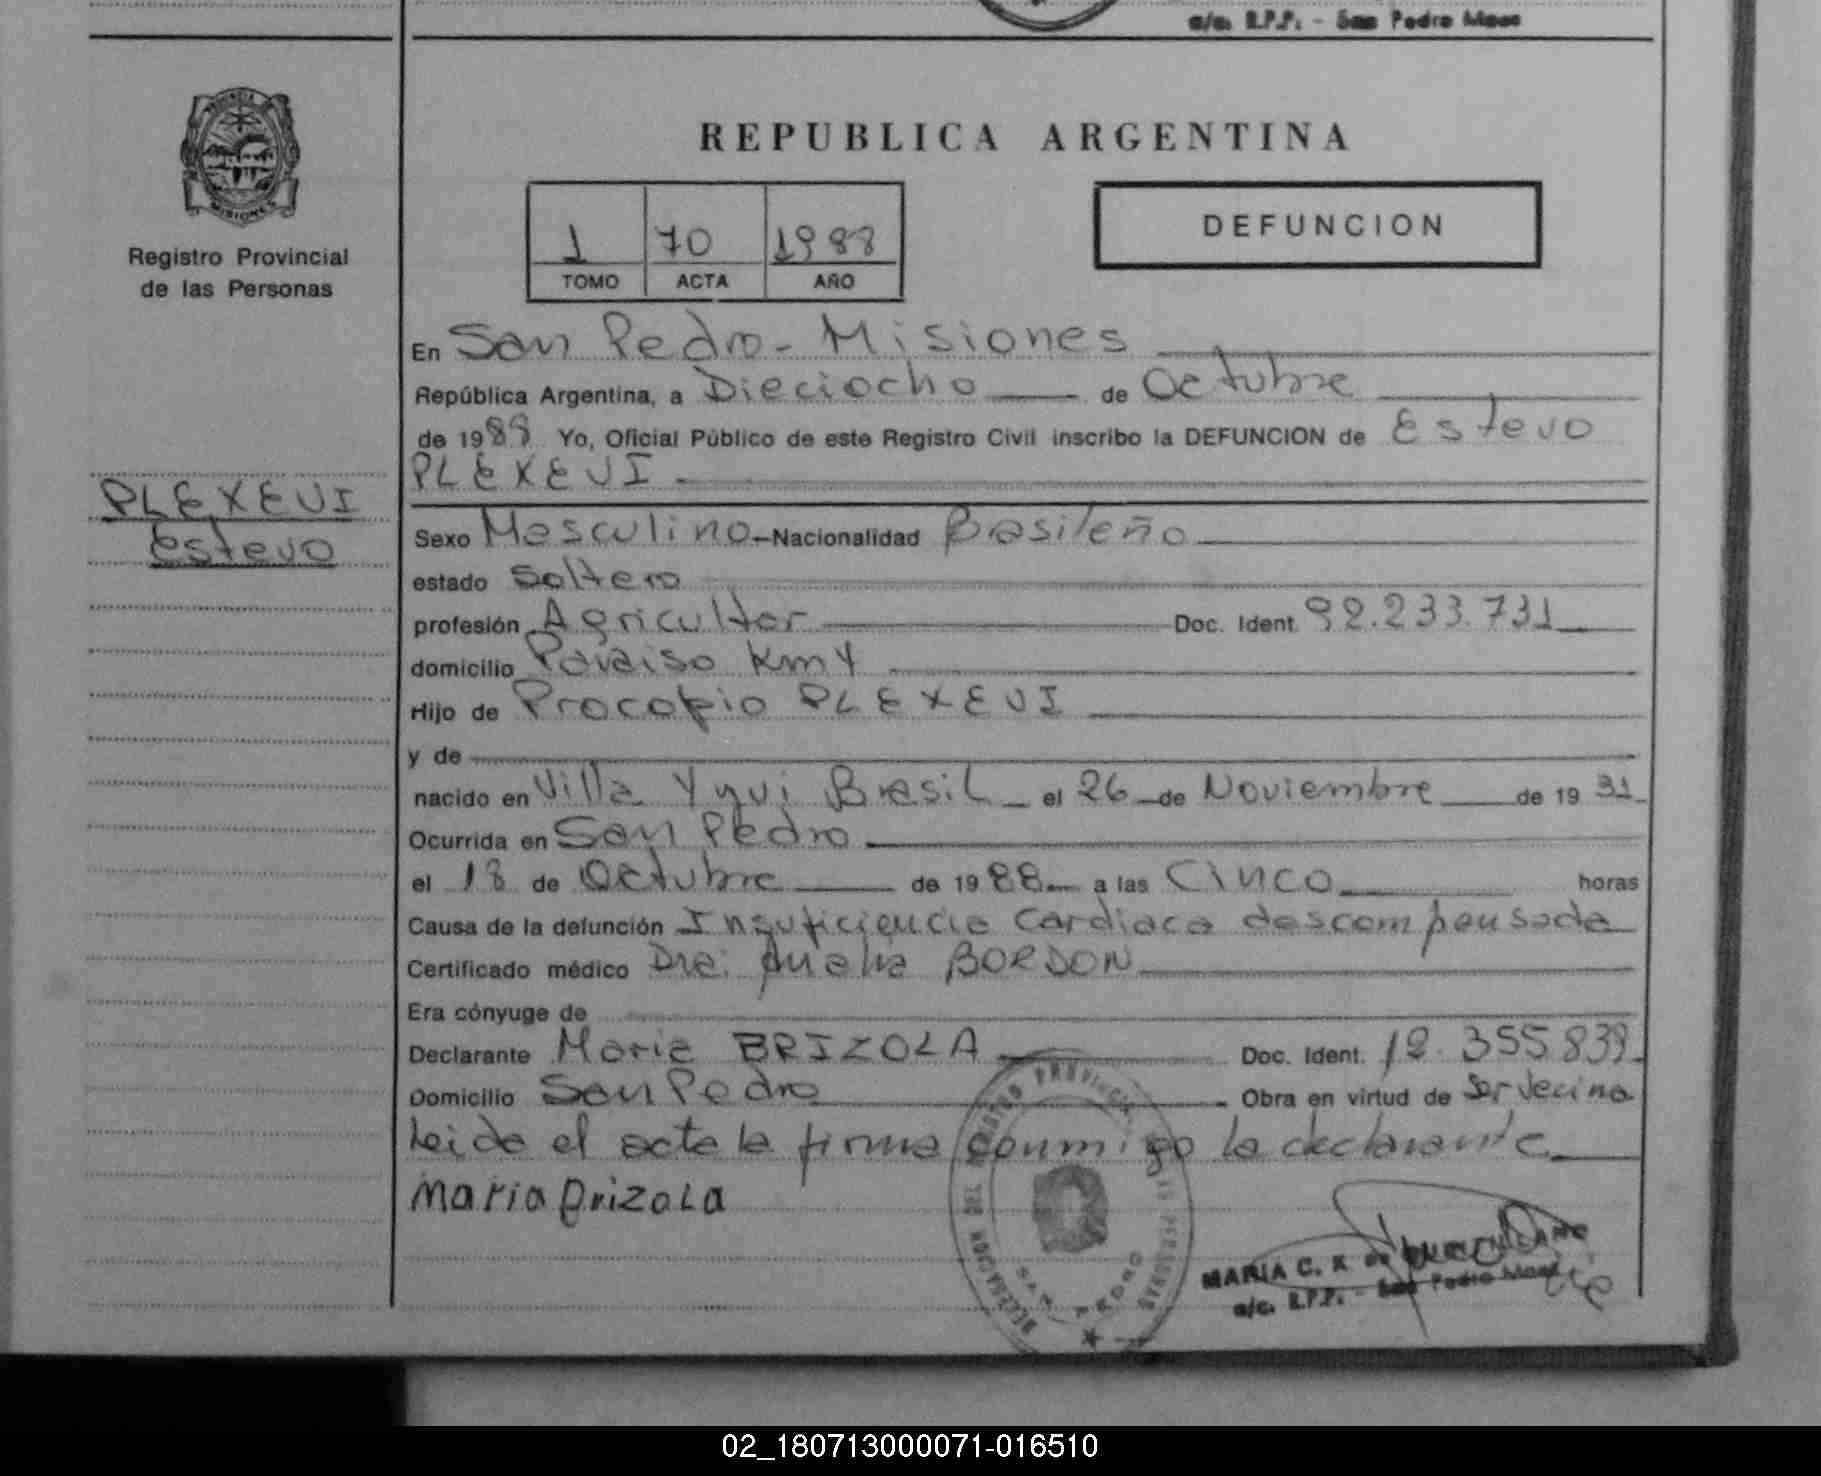 a/c. R.P.P. - San Pedro Mnes
PROVINCIA DE
MISIONES
Registro Provincial
de las Personas
REPUBLICA ARGENTINA
1 70 1988
TOMO ACTA AÑO
DEFUNCION
En San Pedro - Misiones
República Argentina, a Dieciocho de Octubre
de 1988 Yo, Oficial Público de este Registro Civil inscribo la DEFUNCION de Estevo
PLEXEVI
PLEXEVI
Estevo
Sexo Masculino - Nacionalidad Brasileño
estado Soltero
profesión Agricultor Doc. Ident. 92.233.731
domicilio Paraiso Km Y
Hijo de Procopio PLEXEVI
y de
nacido en Villa Yyui Brasil el 26 de Noviembre de 19 31
Ocurrida en San Pedro
el 18 de Octubre de 1988 a las Cinco horas
Causa de la defunción Insuficiencia cardiaca descompensada
Certificado médico Dra. Amalia BORDON
Era cónyuge de
Declarante Maria BRIZOLA Doc. Ident. 12.355.839
Domicilio San Pedro Obra en virtud de Ser vecina
Leida el acta la firma conmigo la declarante
Maria Brizola
DELEGACION DEL REGISTRO PROVINCIAL DE LAS PERSONAS
SAN PEDRO
MARIA C. K. de
a/c. R.P.P. - San Pedro Mnes
02_180713000071-016510